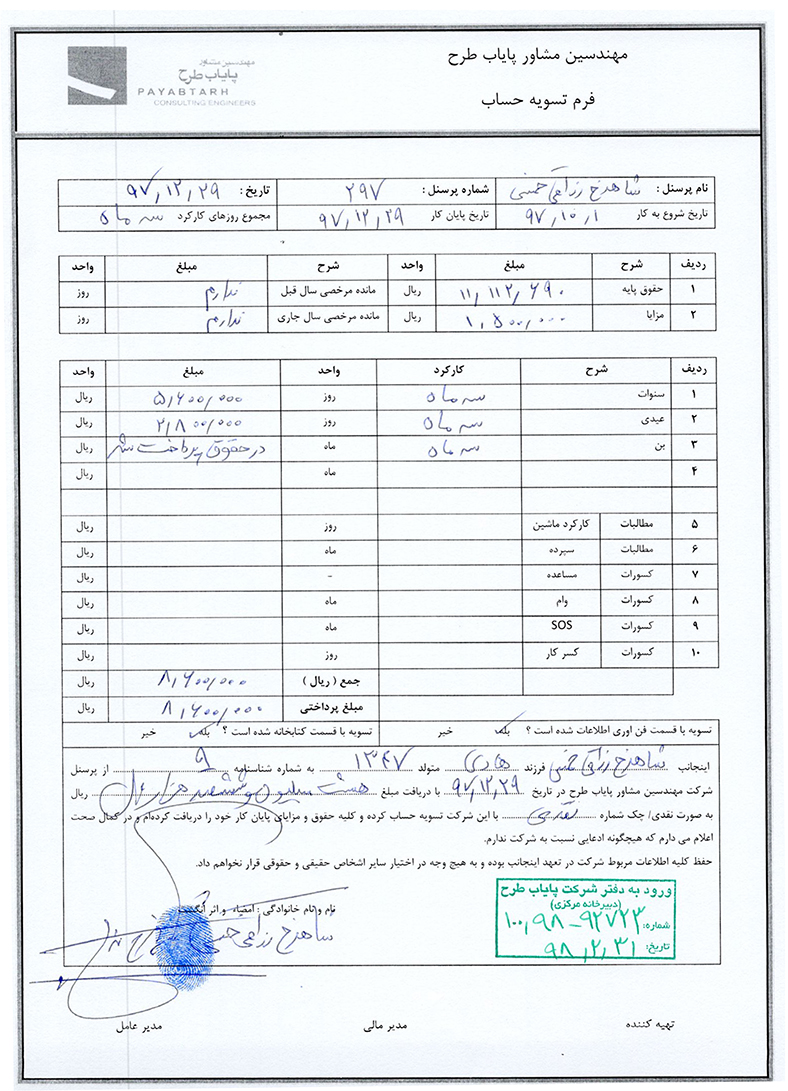 مهندسین مشاور پایاب طرح
مهندسین مشاور
پایاب طرح
PAYABTARH
CONSULTING ENGINEERS
فرم تسویه حساب
نام پرسنل : شماره پرسنل : ۲۹۷ تاریخ : ۹۷,۱۲,۲۹
تاریخ شروع به کار ۹۷,۱۰,۱ تاریخ پایان کار ۹۷,۱۲,۲۹ مجموع روزهای کارکرد سه ماه
ردیف شرح مبلغ واحد شرح مبلغ واحد
۱ حقوق پایه ۱۱,۱۱۲,۶۹۰ ریال مانده مرخصی سال قبل ندارم روز
۲ مزایا ۱,۵۰۰/۰۰۰ ریال مانده مرخصی سال جاری ندارم روز
ردیف شرح کارکرد واحد مبلغ واحد
۱ سنوات سه ماه روز ۵,۶۰۰/۰۰۰ ریال
۲ عیدی سه ماه روز ۲,۸۰۰/۰۰۰ ریال
۳ بن سه ماه ماه در حقوق پرداخت شد ریال
۴ ماه ریال
۵ مطالبات کارکرد ماشین روز ریال
۶ مطالبات سپرده ماه ریال
۷ کسورات مساعده - ریال
۸ کسورات وام ماه ریال
۹ کسورات SOS ماه ریال
۱۰ کسورات کسر کار روز ریال
جمع ( ریال ) ۸,۶۰۰/۰۰۰ ریال
مبلغ پرداختی ۸,۶۰۰/۰۰۰ ریال
تسویه با قسمت فن اوری اطلاعات شده است ؟ بله خیر تسویه با قسمت کتابخانه شده است ؟ بله خیر
اینجانب فرزند هادی متولد ۱۳۴۷ به شماره شناسنامه ۹ از پرسنل
شرکت مهندسین مشاور پایاب طرح در تاریخ ۹۷,۱۲,۲۹ با دریافت مبلغ هشت میلیون و ششصد هزار ریال ریال
به صورت نقدی/ چک شماره نقدی با این شرکت تسویه حساب کرده و کلیه حقوق و مزایای پایان کار خود را دریافت کرده‌ام و در کمال صحت
اعلام می دارم که هیچگونه ادعایی نسبت به شرکت ندارم.
حفظ کلیه اطلاعات مربوط شرکت در تعهد اینجانب بوده و به هیچ وجه در اختیار سایر اشخاص حقیقی و حقوقی قرار نخواهم داد.
نام و نام خانوادگی : امضاء و اثر انگشت
ورود به دفتر شرکت پایاب طرح
(دبیرخانه مرکزی)
شماره: ۱۰۰,۹۸-۹۲۷۲۳
تاریخ: ۹۸,۲,۳۱
تهیه کننده مدیر مالی مدیر عامل